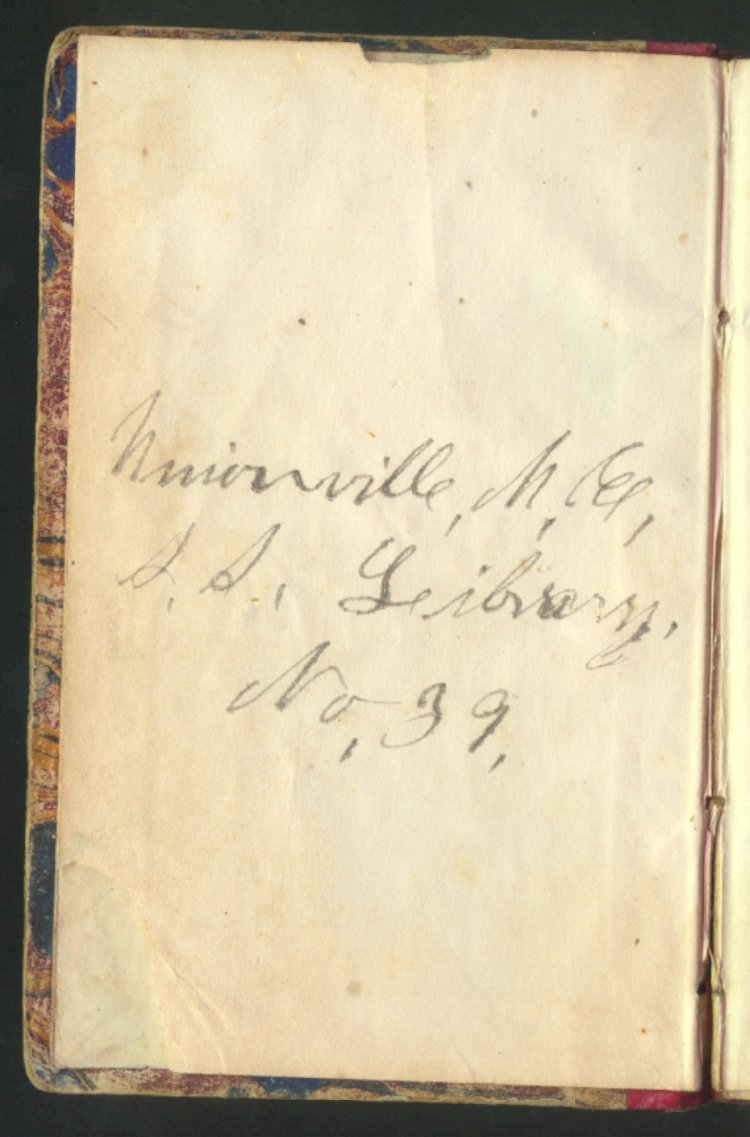 Unionville, M, E,
S, S, Leibrary,
No, 39,